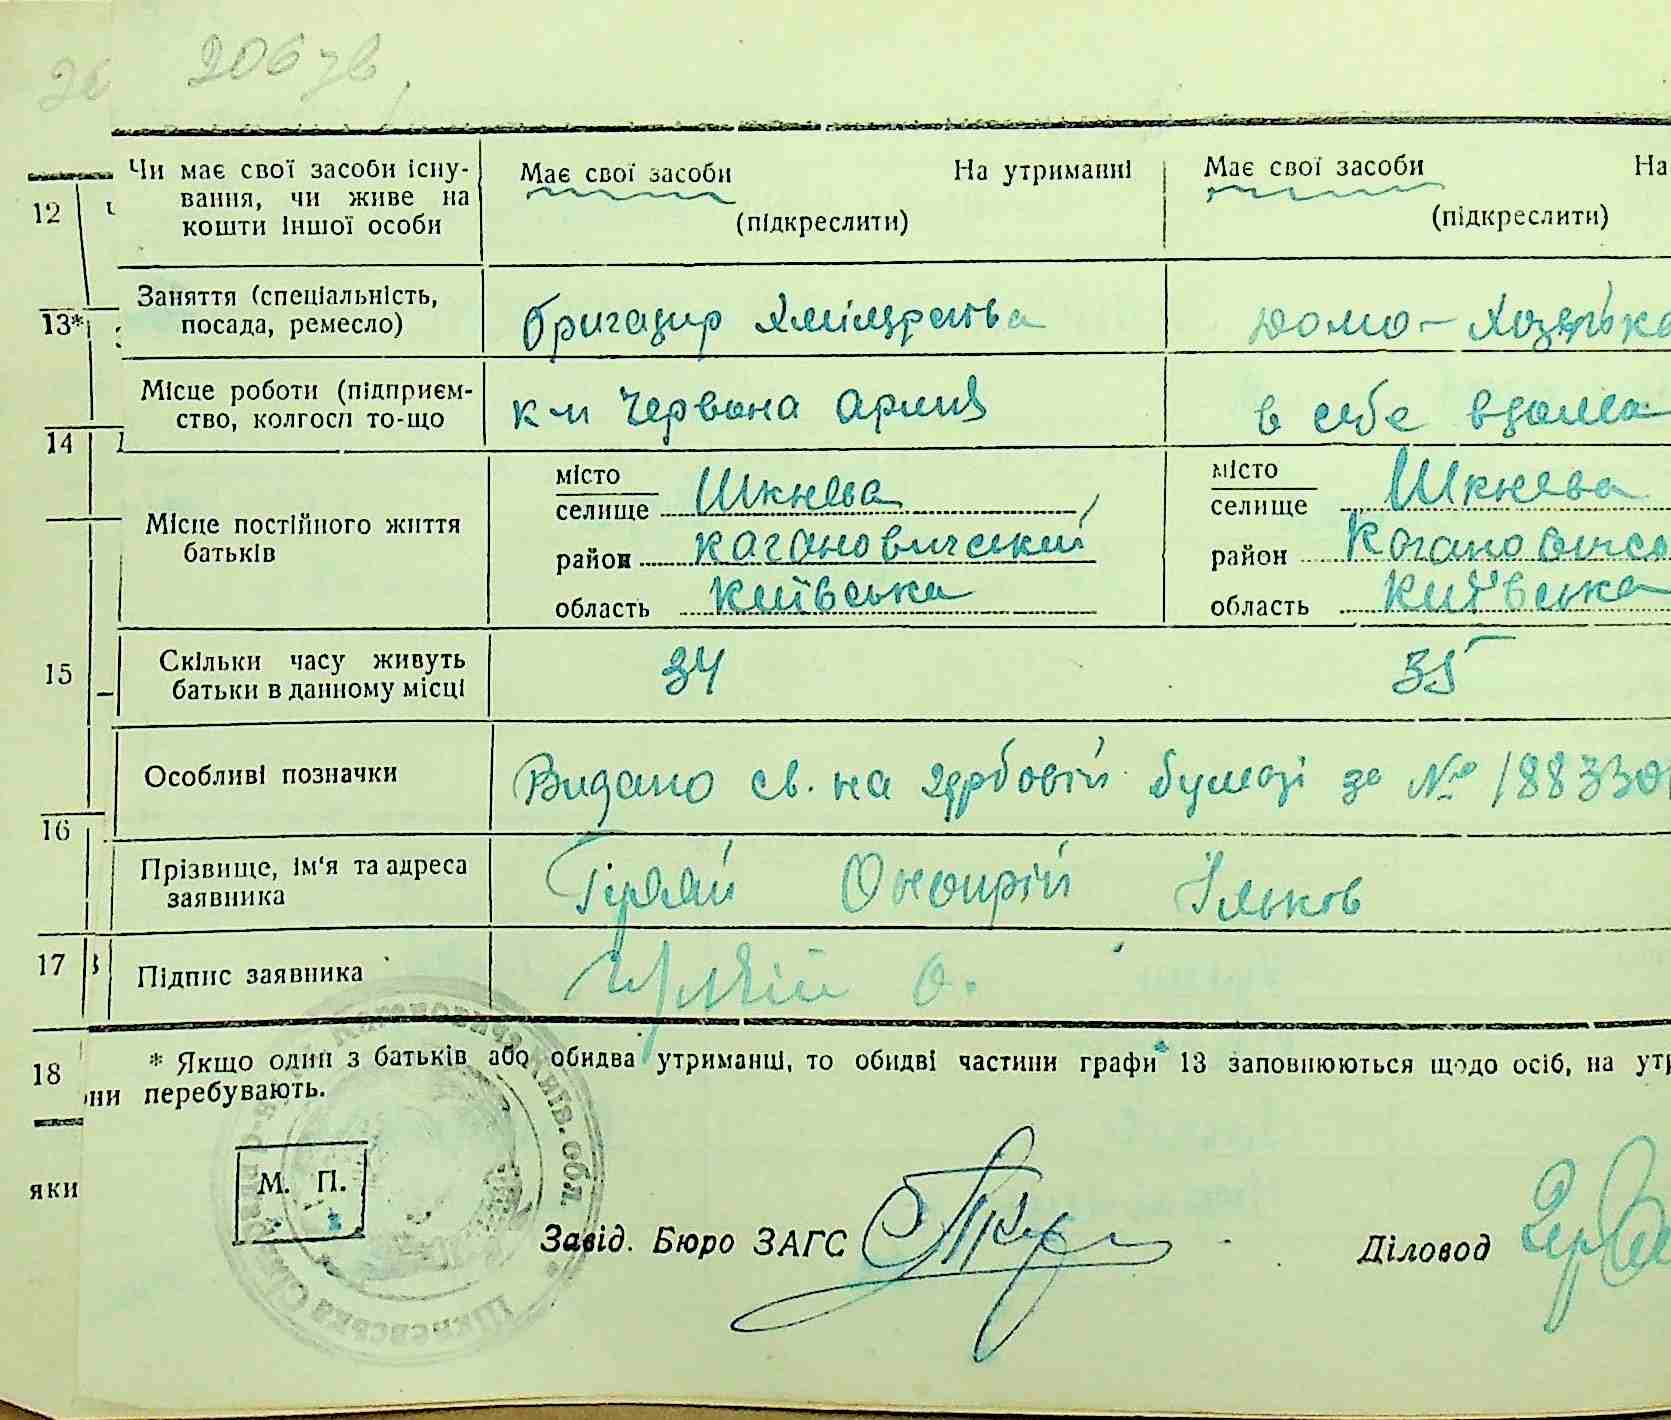 206 зв
Чи має свої засоби існу-
вання, чи живе на
кошти іншої особи
Має свої засоби На утриманні
(підкреслити)
Має свої засоби На
(підкреслити)
12
Заняття (спеціальність,
посада, ремесло)
бригадир
домо-хозяйка
13*
Місце роботи (підприєм-
ство, колгосп то-що
к-п Червона армія
в себе вдома
14
Місце постійного життя
батьків
місто
селище Шкнева
район Кагановичский
область Київська
місто
селище Шкнева
район Кагановичсь
область Київська
15
Скільки часу живуть
батьки в данному місці
34
35
Особливі позначки
Видано св. на гербовій бумазі за № 188330
16
Прізвище, ім'я та адреса
заявника
Оноприй Ільков
17
Підпис заявника
О.
18
* Якщо один з батьків або обидва утриманці, то обидві частини графи 13 заповнюються щодо осіб, на утр
они перебувають.
яки
М. П.
Завід. Бюро ЗАГС
Діловод